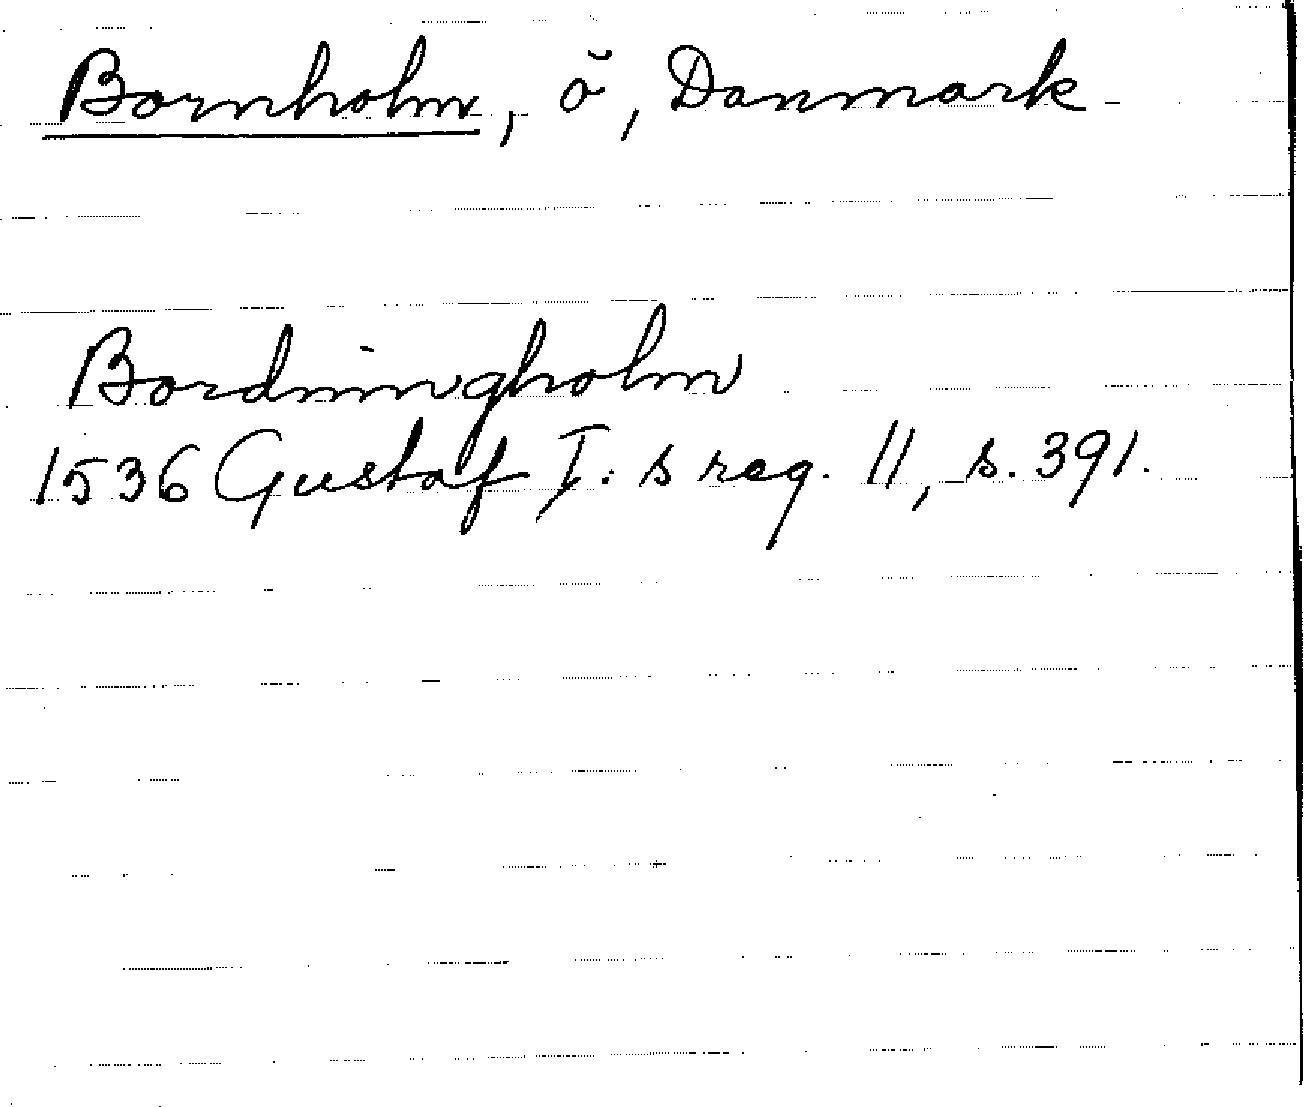 Bornholm, ö, Danmark
Bordningholm
1536 Gustaf I:s reg. 11, s. 391.